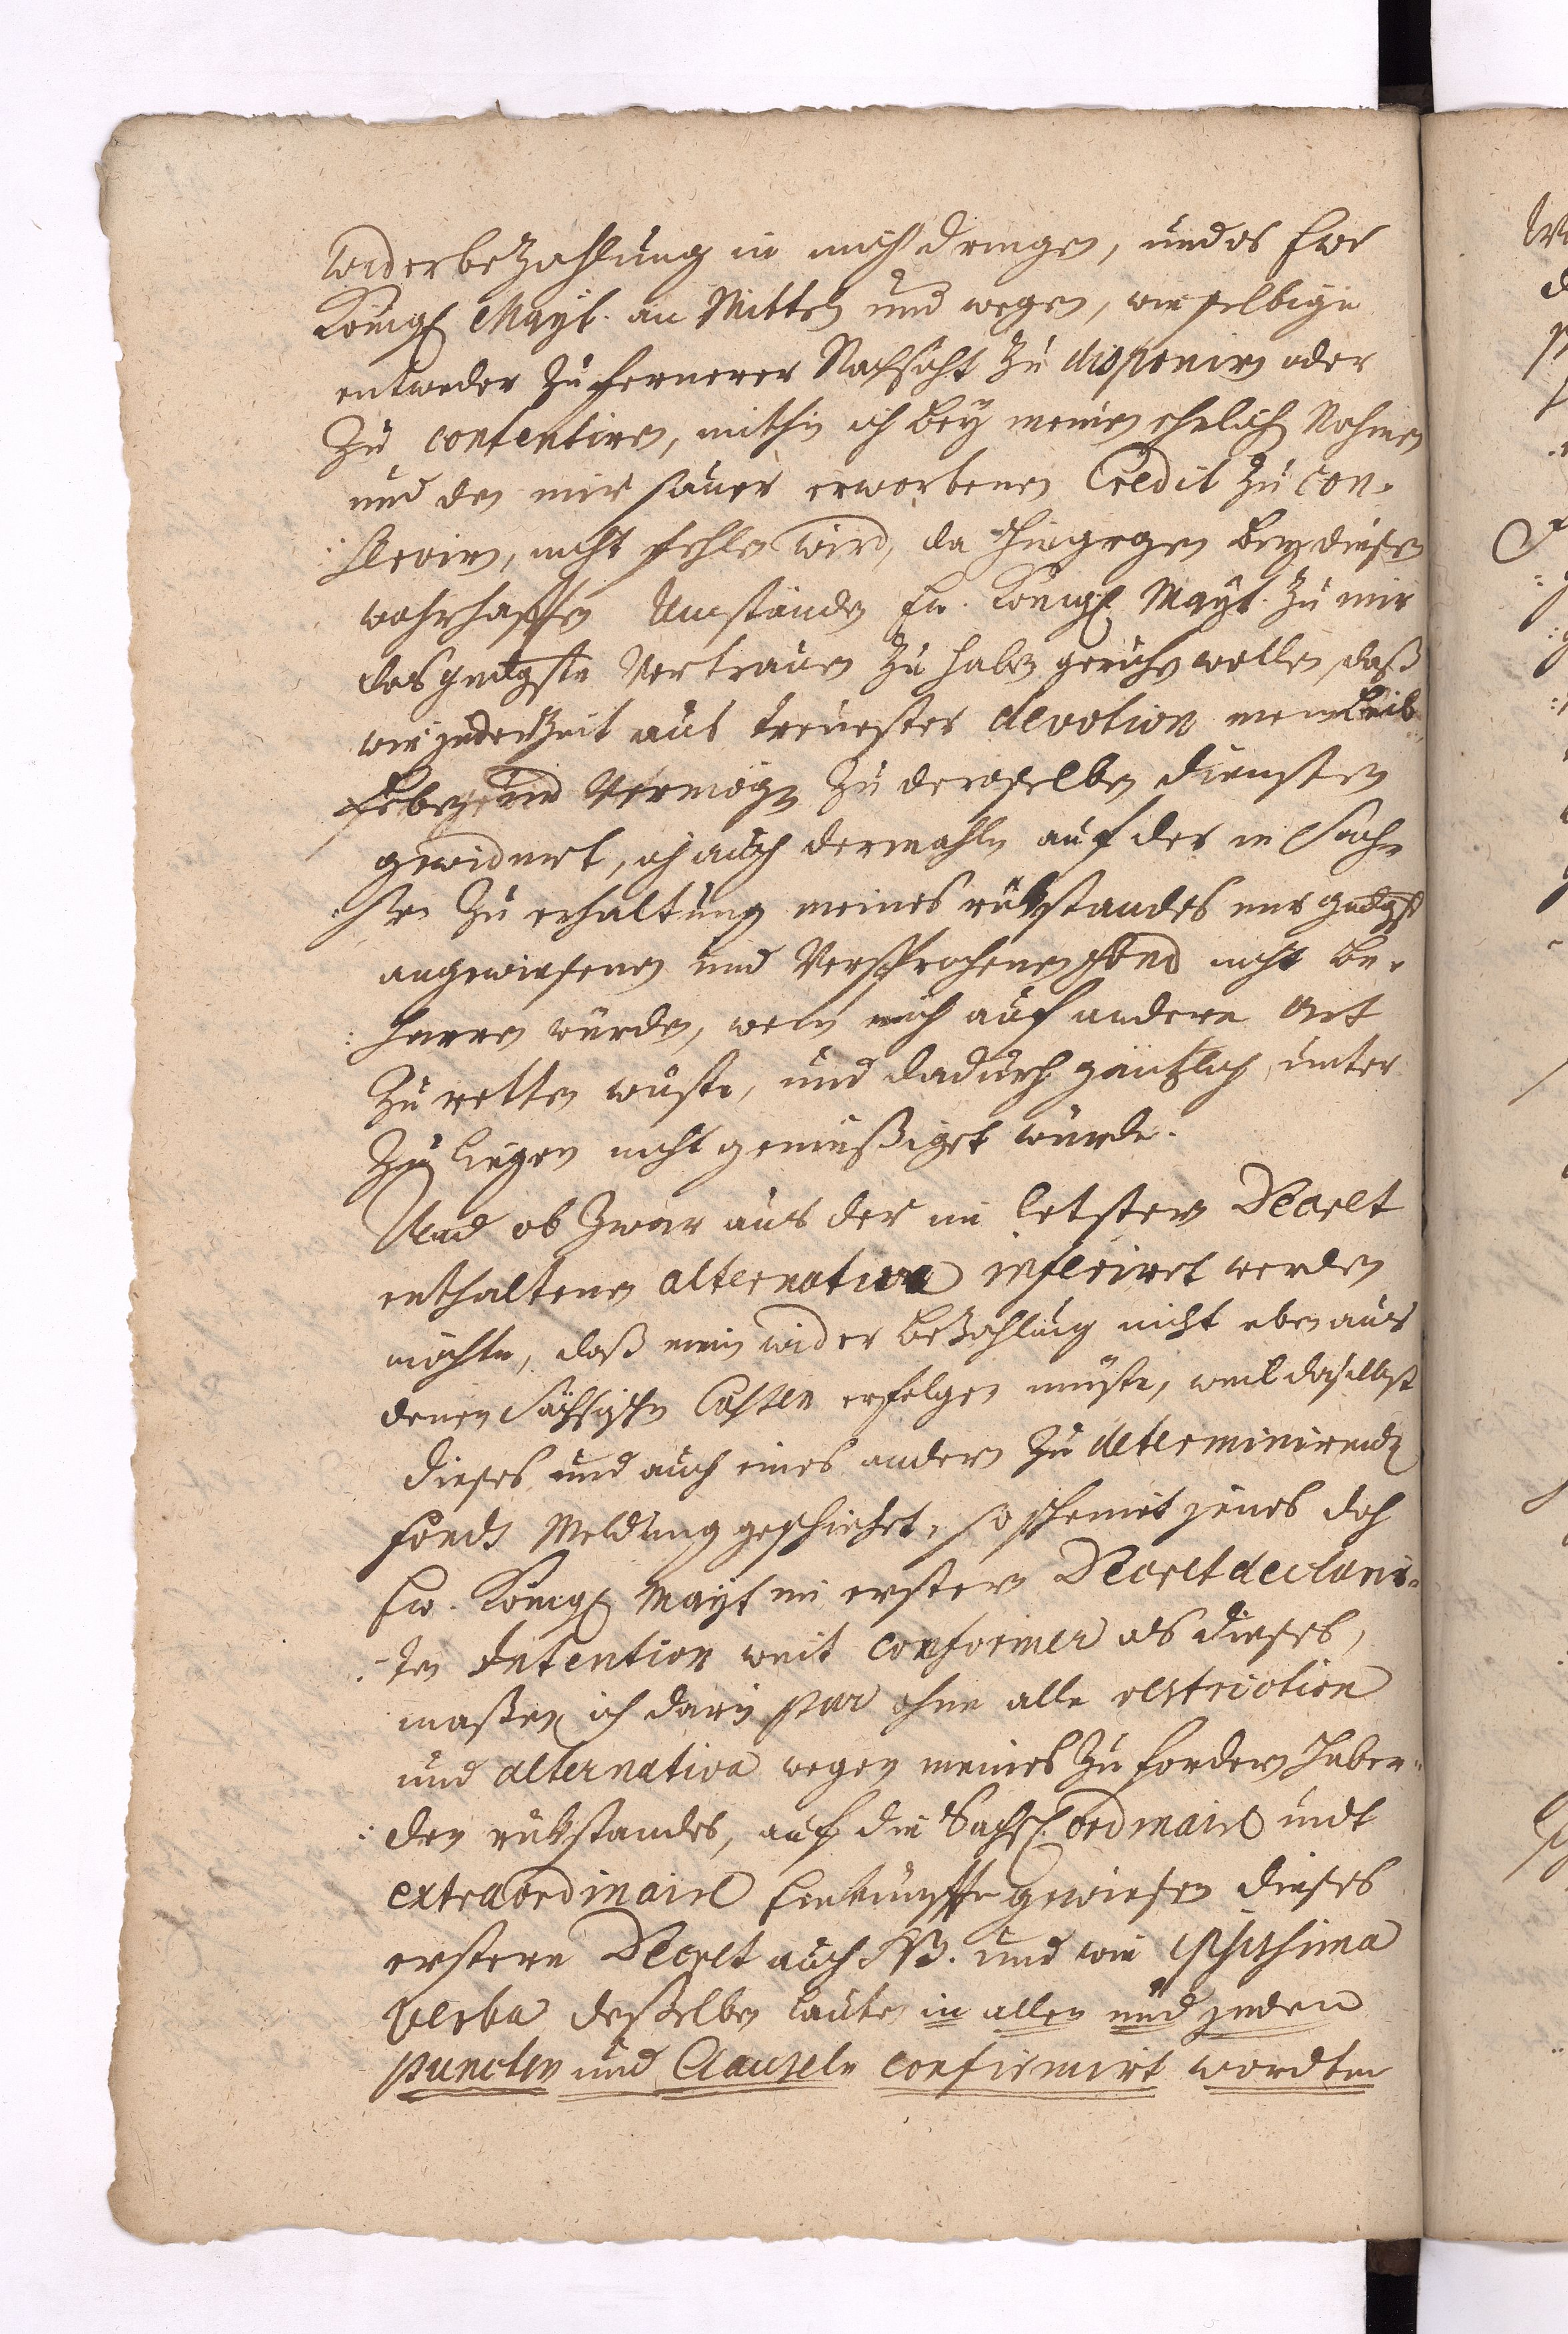 widerbezahlung in mich dringen, und es Ewr
Königl Mayt. an Mitteln und wegen, wie selbige
entweder zu fernerer Nachsicht zu disponirn oder
zu contentiren, mithin ich bey meinen ehrlichen Nahmen
und den mir sauer erworbenen Credit zu con-
:serviren, nicht fehlen wird, da hingegen bey diesen
wahrhafften Umständen Ew. Königl Mayt. zu mir
das gndgste Vertrauen zu haben geruhen wollen, daß
wie jederzeit aus treuester devotion mein Leib
Leben und Vermögen zu deroselben diensten
gewidmet, ich auch dermahln auf der in Sach-
:sen zu erhaltung meines rükstandes mir gndgst
angewiesenen und versprochenen fond nicht be-
:harren würde, wenn mich auf andere Art
zu retten wuste, und dadurch gäntzlich unter
zu liegen nicht gemüßiget würde.
Und ob zwar aus der im letstern Decret
enthaltenen alternativa inferiret werden
möchte, daß mein wider bezahlung nicht eben aus
denen Sächsischen Cassen erfolgen müste, weil daselbst
dieses und auch eines andern zu determinirenden
fonds Meldung geschiehet, so scheinet jenes doch
Ew. Königl Mayt im erstern Decret declarir-
:ten Intention weit conformer als dieses,
maßen ich darin pur ohne alle restriction
und alternativa wegen meines zu fordern haben-
:den rükstandes, auf die Sächs. ordinaire undt
extraordinaire Einkünffte gewiesen dieses
erstere Decret auch und wie ipsissima
verba deßelben lauten in allen und jeden
puncten und Clauseln confirmirt wordten